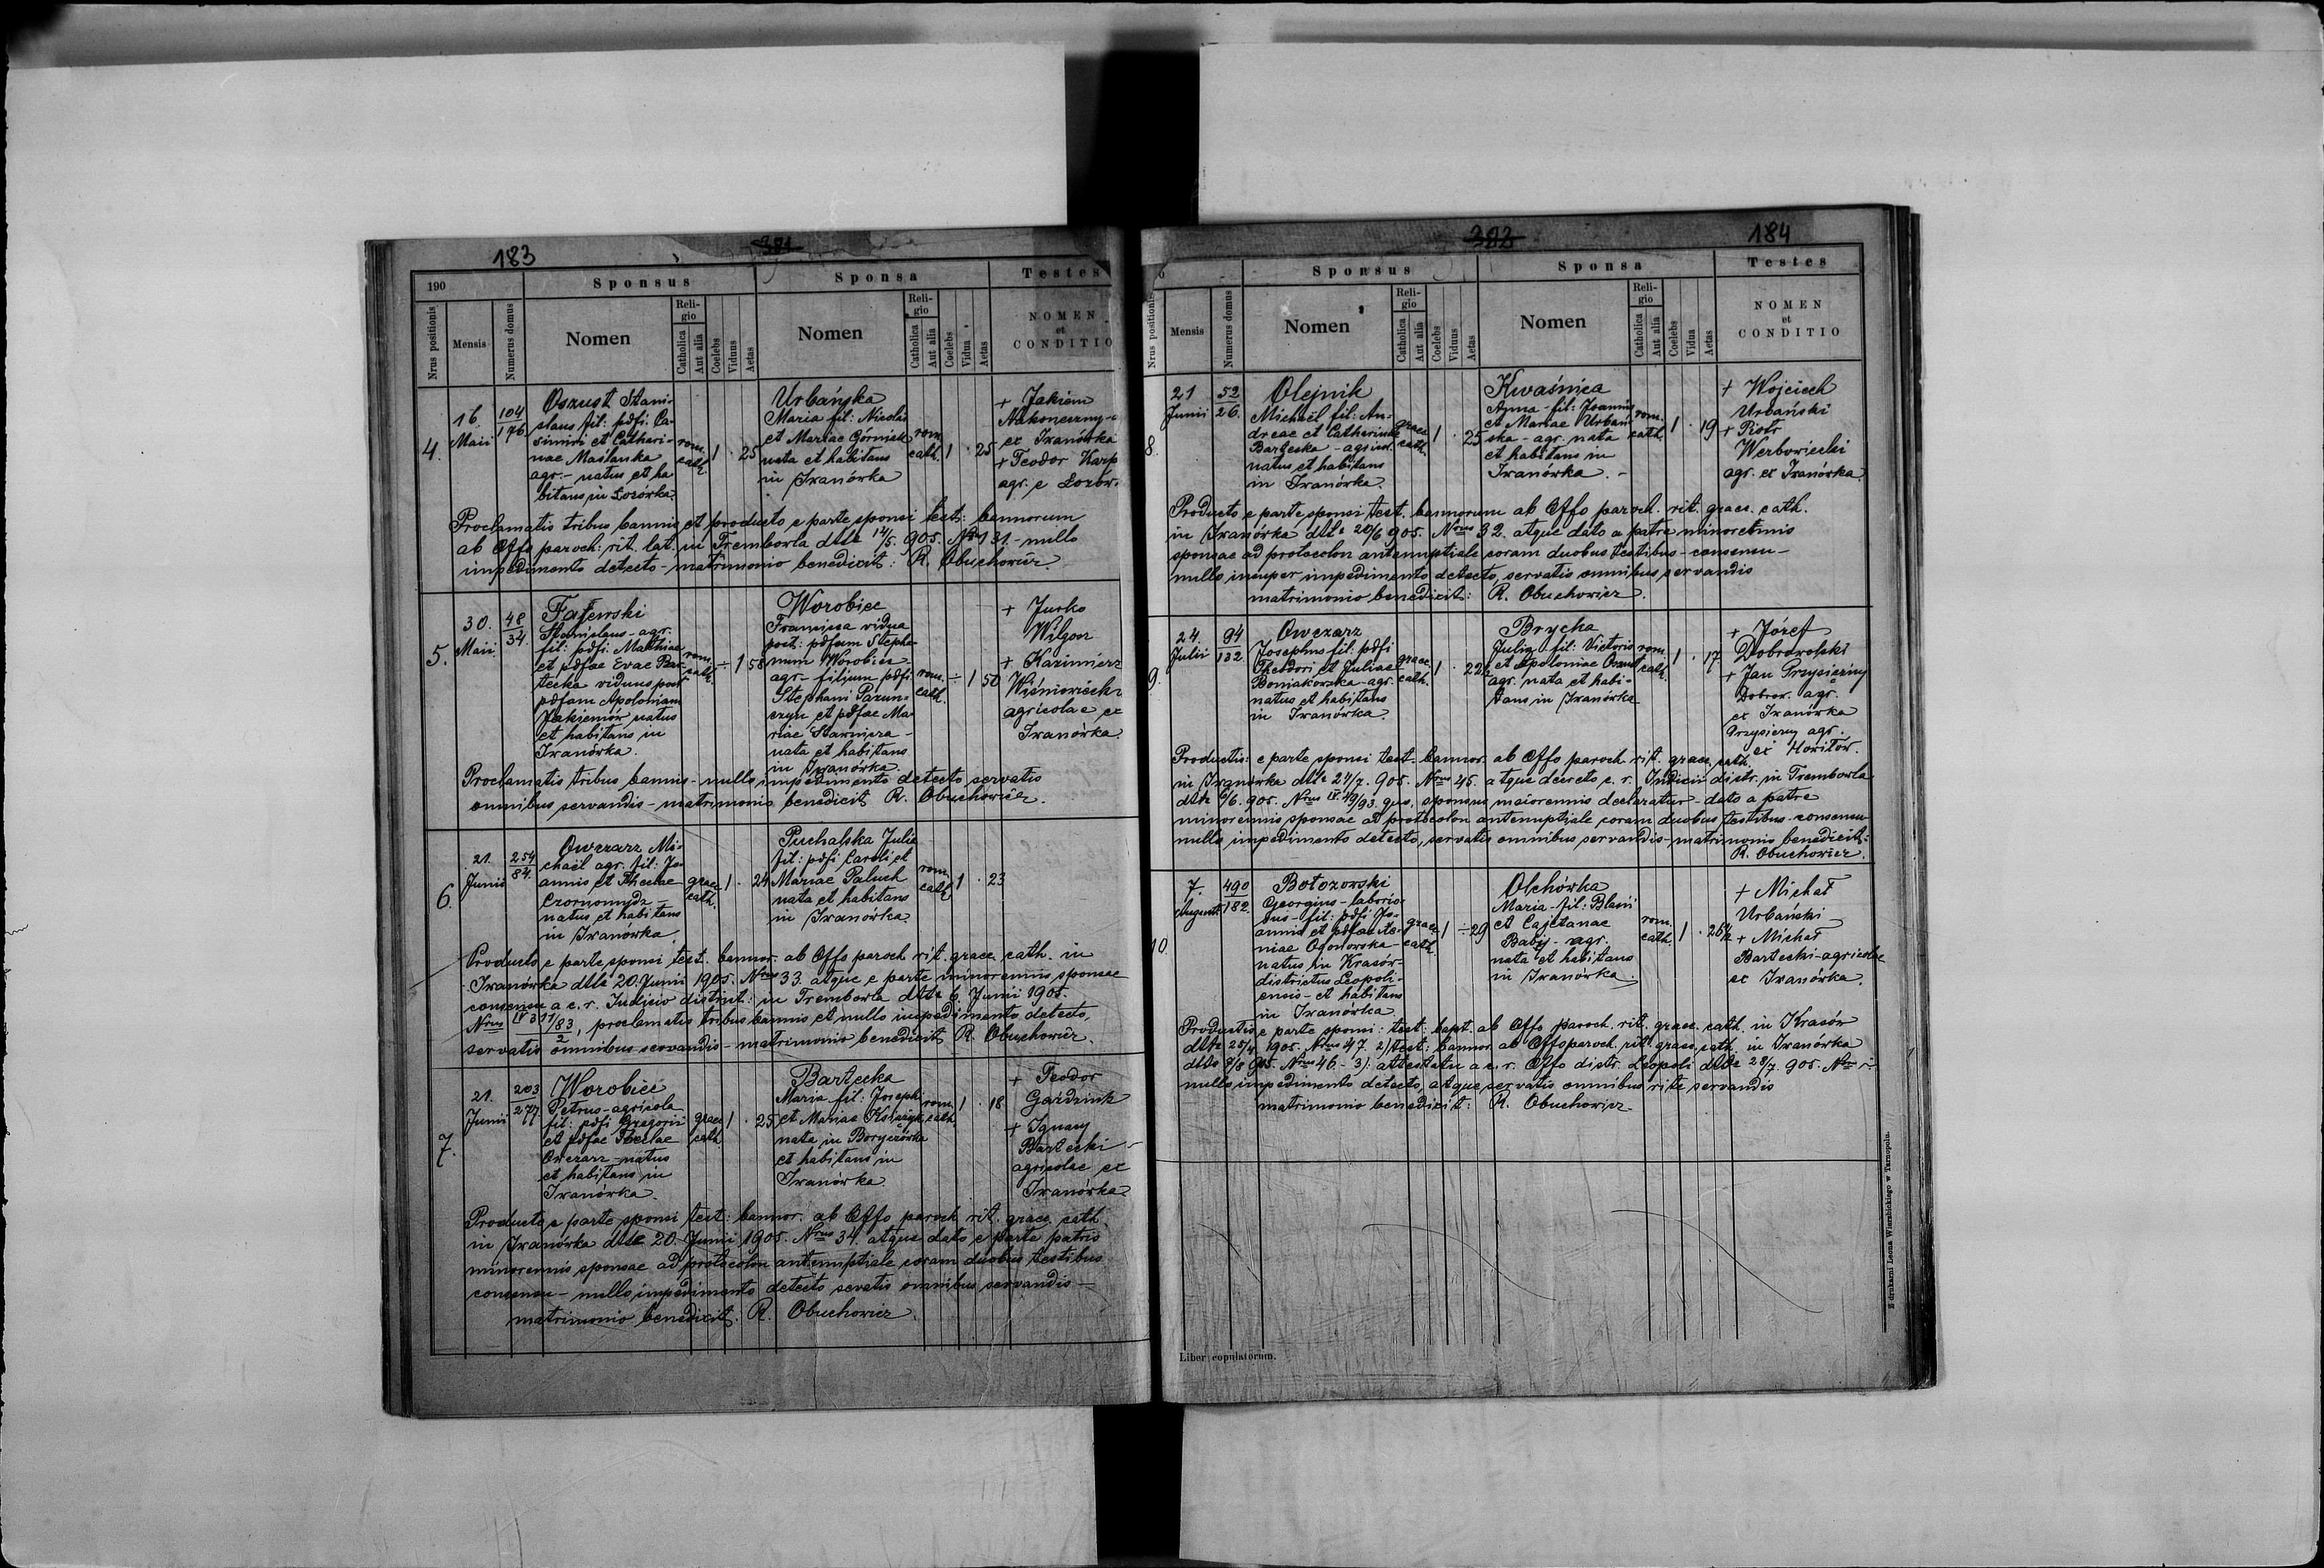 183
381
190
Sponsus
Sponsa
Testes
Nrus positionis
Mensis
Numerus domus
Nomen
Religio
Catholica
Aut alia
Coelebs
Viduus
Aetas
Nomen
Religio
Catholica
Aut alia
Coelebs
Vidua
Aetas
NOMEN
et
CONDITIO
4.
16.
Maii
104
176
Oszust Stani-
slaus fil: pdfi. Ca-
simiri et Cathari-
nae Maślanka
agr. - natus et ha
bitans in Łozówka
rom.
cath.
1 . 25
Urbańska
Maria fil: Nicolai
et Mariae Górniak
nata et habitans
in Iwanówka
rom.
cath.
1 . 25
+ Jakiem
Nakoneczny
ex Iwanówka
+ Teodor Karp
agr. e Łozów
Proclamatis tribus bannis et producto e parte sponsi test: bannorum
ab Offo paroch: rit. lat. in Trembowla dtto 14/5. 905. Nrus 131 - nullo
impedimento detecto - matrimonio benedixit: R. Obuchowicz
5.
30.
Maii
48
34.
Fajewski
Stanislaus - agr.
fil: pdfi. Matthiae
et pdfae Evae Bar-
tecka viduus post
pdfam Apoloniam
Jakiemów natus
et habitans in
Iwanówka.
rom.
cath.
÷ 1 58
Worobiec
Francisca vidua
post: pdfum Stepha-
num Worobiec
agr. - filium pdfi
Stephani Parun-
czyn et pdfae Ma-
riae Starnicza -
nata et habitans
in Iwanówka.
rom.
cath.
÷ 1 50
+ Jurko
Wilgon
+ Kazimierz
Wiśniowiecki
agricolae ex
Iwanówka.
Proclamatis tribus bannis - nullo impedimento detecto servatis
omnibus servandis - matrimonio benedicit R. Obuchowicz.
6.
21.
Junii
254
84.
Owczarz Mi-
chaël agr. fil: Jo-
annis et Theclae
Czornomydz -
natus et habitans
in Iwanówka
graec.
cath.
1 . 24
Puchalska Julia
fil: pdfi Caroli et
Mariae Paluch
nata et habitans
in Iwanówka
rom.
cath.
1 . 23
Producto e parte sponsi test. bannor. ab Offo paroch rit. graec. cath. in
Iwanówka dtto 20. Junii 1905. Nrus 33. atque e parte minorennis sponsae
consensu a c. r. Judicio district: in Trembowla dtto 6. Junii 1905.
Nrus IV 3 11/83, proclamatis tribus bannis et nullo impedimento detecto,
2
servatis omnibus servandis - matrimonio benedicit R. Obuchowicz.
7.
21.
Junii
203
277
Worobiec
Petrus - agricola
fil: pdfi Gregorii
et pdfae Theclae
Owczarz - natus
et habitans in
Iwanówka.
graec
cath
1 . 25
Bartecka
Maria fil: Joseph
et Mariae
nata in Boryczówka
et habitans in
Iwanówka
rom.
cath.
1 . 18
+ Teodor
Gardziuk
+ Ignacy
Bartecki
agricolae ex
Iwanówka
Producto e parte sponsi test: bannor. ab Offo paroch rit. graec. cath.
in Iwanówka dtto 20. Junii 1905. Nrus 34. atque dato e parte patris
minorennis sponsae ad protocolon antenuptiale coram duobus testibus
consensu - nullo impedimento detecto sevatis omnibus servandis -
matrimonio benedicit. R. Obuchowicz.
382
184
0
Sponsus
Sponsa
Testes
Nrus positionis
Mensis
Numerus domus
Nomen
Religio
Catholica
Aut alia
Coelebs
Viduus
Aetas
Nomen
Religio
Catholica
Aut alia
Coelebs
Vidua
Aetas
NOMEN
et
CONDITIO
8.
21
Junii
52
26.
Olejnik
Michaël fil: An-
dreae et Catharinae
Barteska - agricol.
natus et habitans
in Iwanówka.
graec
cath.
1 . 25
Kwaśnica
Anna - fil: Joannis
et Mariae Urbań
ska - agr. nata
et habitans in
Iwanówka. -
rom.
cath.
1 . 19
+ Wojciech
Urbański
+ Piotr
Werbowiecki
agr. ex Iwanówka
Producto e parte sponsi test. bannorum ab Offo paroch. rit. graec. cath.
in Iwanówka dtto 20/6 905. Nrus 32. atque dato a patre minorennis
sponsae ad protocolon antenuptiale coram duobus testibus - consensu -
nullo insuper impedimento detecto, servatis omnibus servandis
matrimonio benedixit: R. Obuchowicz.
9.
24.
Julii
94
132
Owczarz
Josephus fil: pdfi
Theodori et Juliae
Boniakowska - agr.
natus et habitans
in Iwanówka.
graec
cath.
1 . 22½
Brycka
Julia fil: Victoris
et Apoloniae Oszust
agr. nata et habi-
tans in Iwanówka
rom.
cath.
1 . 17
+ Józef
Dobrowolski
+ Jan Przysiężny
Dobrow. agr.
ex Iwanówka
Przysiężny agr.
ex Howiłów.
Productis: e parte sponsi test. bannor. ab Offo paroch. rit. graec. cath.
in Iwanówka dtto 24/7. 905. Nrus 45. atque decreto c. r. Judicii distr. in Trembowla
dtto 6/6. 905. Nrus IV. 49/93. quo, sponsus maiorennis declaratur - dato a patre
minorennis sponsae ad protocolon antenuptiale coram duobus testibus - consensu
nullo impedimento detecto, servatis omnibus servandis - matrimonio benedicit:
R. Obuchowicz.
10
7.
Augusti
490
182.
Botozowski
Georgius - laborio-
sus - fil: pdfi Jo-
annis et pdfae Xe-
niae Ogonowska -
natus in Krasów
districtus Leopoli-
ensis - et habitans
in Iwanówka
graec
cath.
1 ÷ 29
Olchówka
Maria - fil: Blasii
et Cajetanae
Baby - agr.
nata et habitans
in Iwanówka.
rom.
cath.
1 . 26½
+ Michał
Urbański
+ Michał
Bartecki - agricolae
ex Iwanówka.
Productis e parte sponsi: test: bapt. ab Offo paroch. rit. graec. cath. in Krasów
dtto 25/4 1905. Nrus 47. 2) test: bannor. ab Offo paroch. rit. graec. cath. in Iwanówka
dtto 7/8 905. Nrus 46. - 3) attestatu a c. r. Offo distr. Leopoli dtto 28/7. 905. Nrus
nullo impedimento detecto, atque servatis omnibus rite servandis
matrimonio benedixit: R. Obuchowicz.
Liber copulatorum.
Z drukarni Leona Wierzbickiego w Tarnopolu.